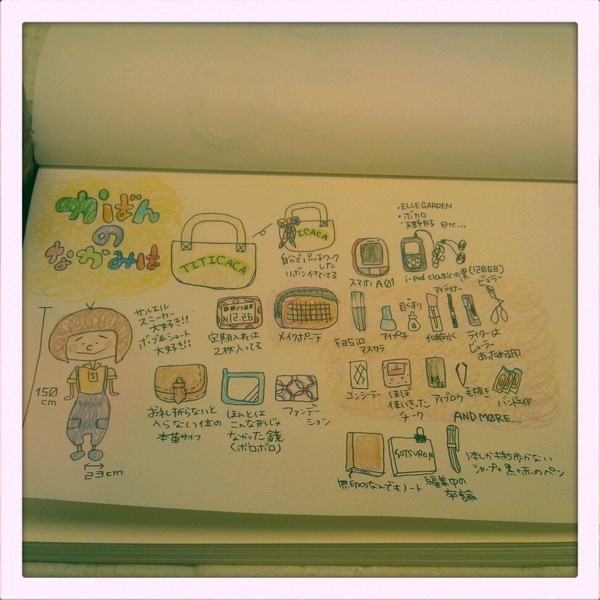 かばん
の
なかみは
TITICACA
TICACA
自分でパッチワーク
した
リボン付けてる
・ELLEGARDEN
・ボカロ
etc...
スマホ：A01
i-pod classicの黒(120GB)
サルエル
スニーカー
大好き!!
ボブ&ショート
大好き!!
150
cm
23cm
定期入れは
2枚入ってる
メイクポーチ
Fasio
マスカラ
アイプチ
目薬
アイライナー
ビューラー
ライターは
ビューラー
あたためる用
お札折らないと
入らない位の
本革サイフ
ほんとは
こんな形じゃ
なかった鏡
(ボロボロ)
ファンデー
ション
コンシーラー
ほぼ
使いきった
チーク
アイブロウ
毛抜き
バンドエイド
AND MORE...
SOTSURON
無印のなんでもノート
編集中の
卒論
1本しか持ち歩かない
シャープ+黒+赤のペン